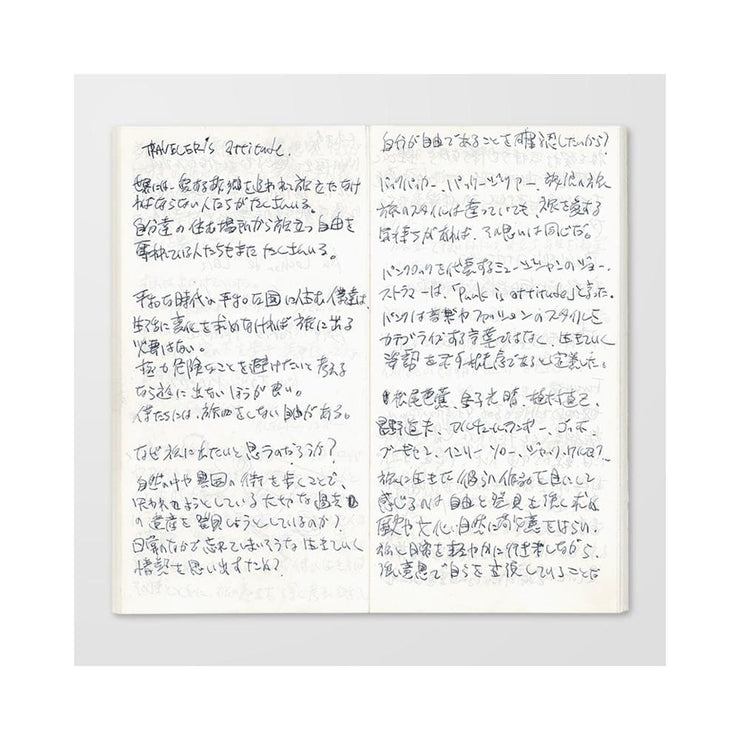 TRAVELER's attitude.
世界には、愛する故郷を追われて旅をたなけ
ればならない人たちがたくさんいる。
自分達の住む場所から旅立つ自由を
奪われている人たちもまたたくさんいる。
平和な時代の平和な国に住む僕達は、
生活に変化を求めなければ旅に出る
必要はない。
極力危険なことを避けたいと考える
なら旅に出ないほうが良い。
僕たちには、旅をしない自由がある。
なぜ旅に出たいと思うのだろうか?
自然の中や異国の街を歩くことで、
失われようとしている大切な過去
の遺産を発見しようとしているのか?
日常のなかで忘れてしまいそうな生きていく
情熱を思い出すため?
自分が自由であることを確認したいから?
バックパッカー、パッケージツアー、
旅のスタイルは違っていても、旅を愛する
気持ちがあれば、その思いは同じだ。
パンクロックを代表するミュージシャンのジョー・
ストラマーは、「Punk is attitude」と言った。
パンクは音楽やファッションのスタイルを
カテゴライズする言葉ではなく、生きていく
姿勢を示す言葉であると定義した。
松尾芭蕉、金子光晴、植村直己、
星野道夫、アルチュールランボー、ゴッホ、
ゴーギャン、ヘンリー ソロー、ジャック・ケルアック…
旅に生きた彼らの作品を目にして
感じるのは自由と発見を強く求め
歴史や文化、自然に敬意をはらい、
旅と日常を軽やかに行き来しながら、
強い意思で自らを主張していることだ